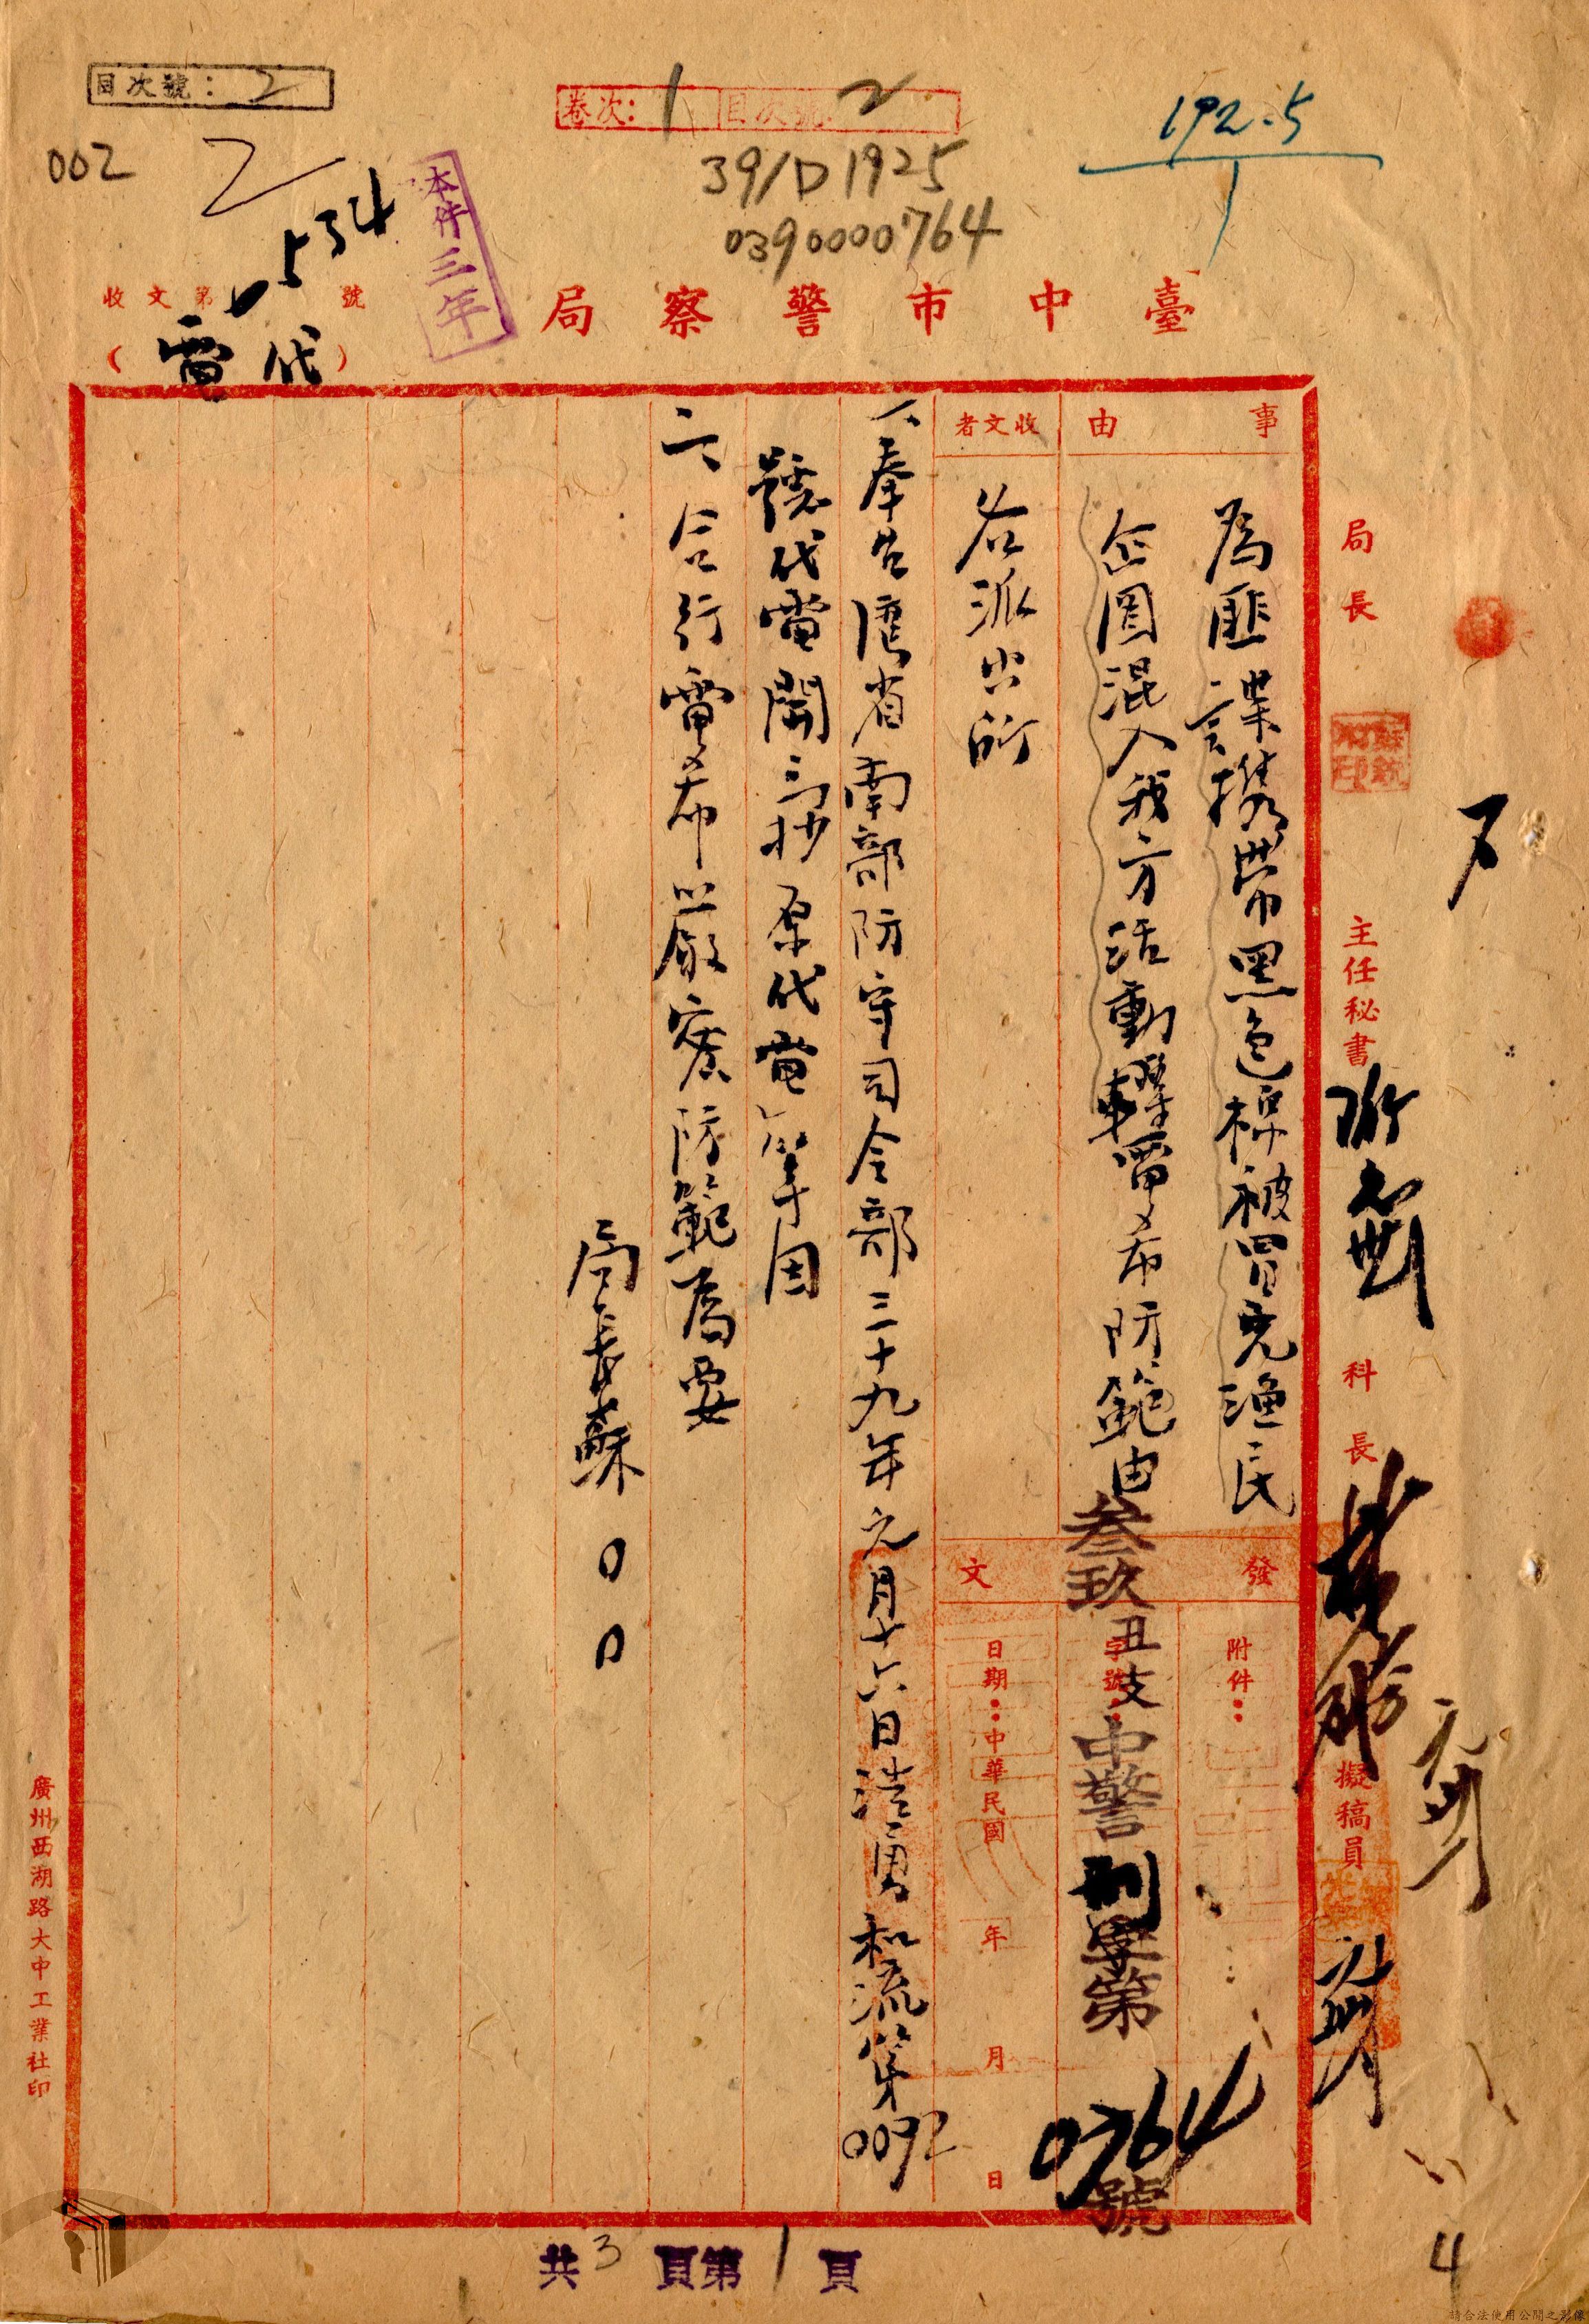 目次號：2
卷次：1 目次號：2
192.5
1
002
2
39/D1925
0390000764
本件三年
收文第 534 號
（代電）
臺中市警察局
事由
為匪諜攜帶黑色棉被冒充漁民
企圖混入我方活動轉電希防範由
收文者
各派出所
發文
附件：
字號：
叁玖丑支中警刑字第0764號
日期：中華民國 年 月 日
一、奉台灣省南部防守司令部三十九年元月十六日浩勇和流第0092
號代電開「抄原代電」等因
二、合行電希嚴密防範為要
局長蘇〇〇
局長
主任秘書
科長
擬稿員
廣州西湖路大中工業社印
共3頁第1頁
4
請合法使用公開之影像